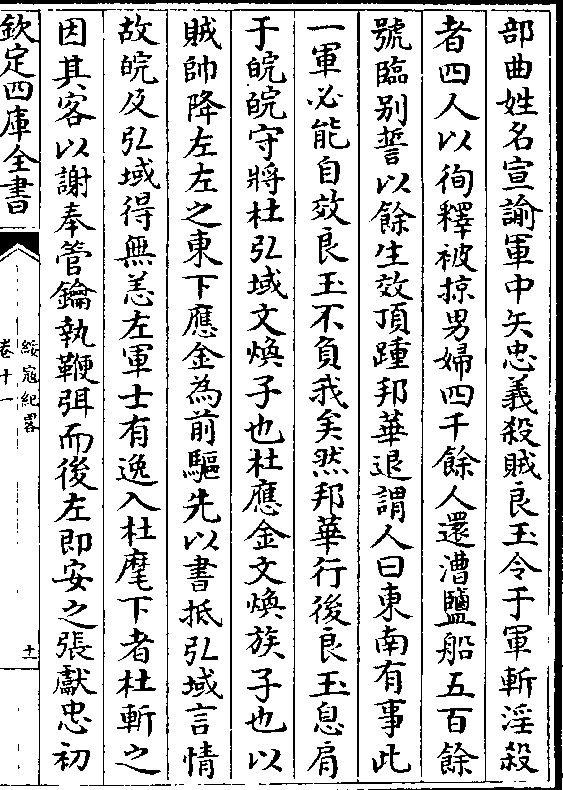 部曲姓名宣諭軍中矢忠義殺賊良玉令于軍斬淫殺
者四人以徇釋被掠男婦四千餘人還漕鹽船五百餘
號臨别誓以餘生效頂踵邦華退謂人曰東南有事此
一軍必能自效良玉不負我矣然邦華行後良玉息肩
于皖皖守將杜弘域文煥子也杜應金文煥族子也以
賊帥降左左之東下應金為前驅先以書抵弘域言情
故皖及弘域得無恙左軍士有逸入杜麾下者杜斬之
因其客以謝奉管鑰執鞭弭而後左即安之張獻忠初
欽定四庫全書
綏寇紀畧
卷十一
十一